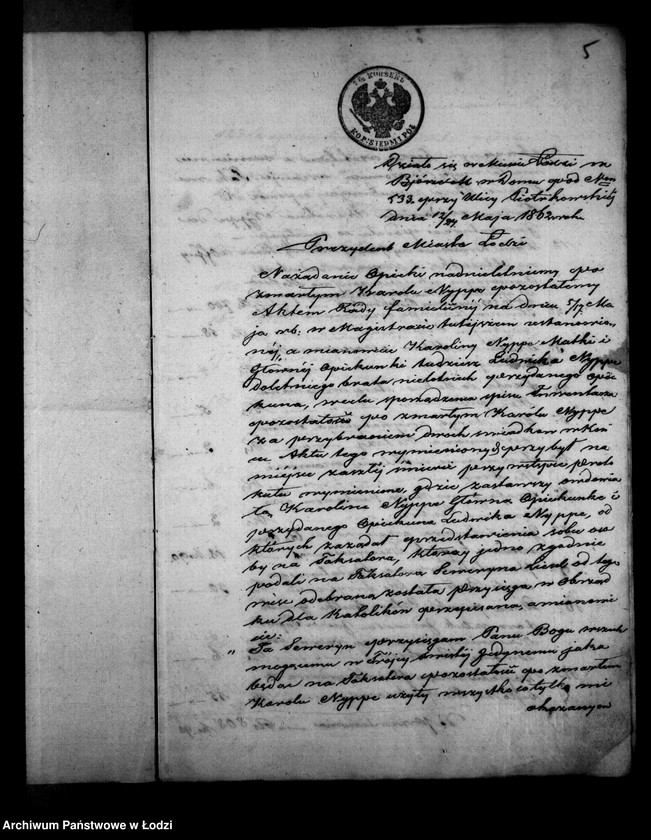 5
7½ KOPIEJEK
KOP: SIEDM I PÓŁ
Działo się w mieście Łodzi w
Biórze w domu pod Nem
533 przy Ulicy Piotrkowskiéj
dnia 12/24 Maja 1862 roku
Prezydent Miasta Łodzi
Na żądanie Opieki nad nieletniemi po
zmarłym Karolu Nyppe pozostałemi
Aktem Rady familijnéj na dniu 5/17 Ma-
ja rb: w Magistracie tutejszym ustanowio-
néj, a mianowicie Karoliny Nyppe Matki i
Głównéj Opiekunki tudzież Ludwika Nyppe
doletniego brata nieletnich przydanego Opie-
kuna, w celu sporządzenia spisu Inwentarza
pozostałości po zmarłym Karolu Nyppe
za przybraniem dwóch świadków w koń-
cu Aktu tego wymienionych przybył na
miejsce zaszłéj śmierci przy wstępie proto-
kułu wymienione, gdzie zastawszy
Karolinę Nyppe Główną Opiekunkę i
przydanego Opiekuna Ludwika Nyppe, od
których zażądał przedstawienia sobie oso-
by na Taksatora, którzy jedno zgodnie
podali na Taksatora Seweryna od tego
odebraną została przysięga w Obrząd-
ku dla Katolików przepisana, a mianowi-
cie:
„Ja Seweryn przysięgam Panu Bogu wszech-
mogącemu w Trójcy świętéj jedynemu jako
będąc na Taksatora pozostałości po zmarłym
Karolu Nyppe użyty wszystko co tylko mi
okazanym
Archiwum Państwowe w Łodzi